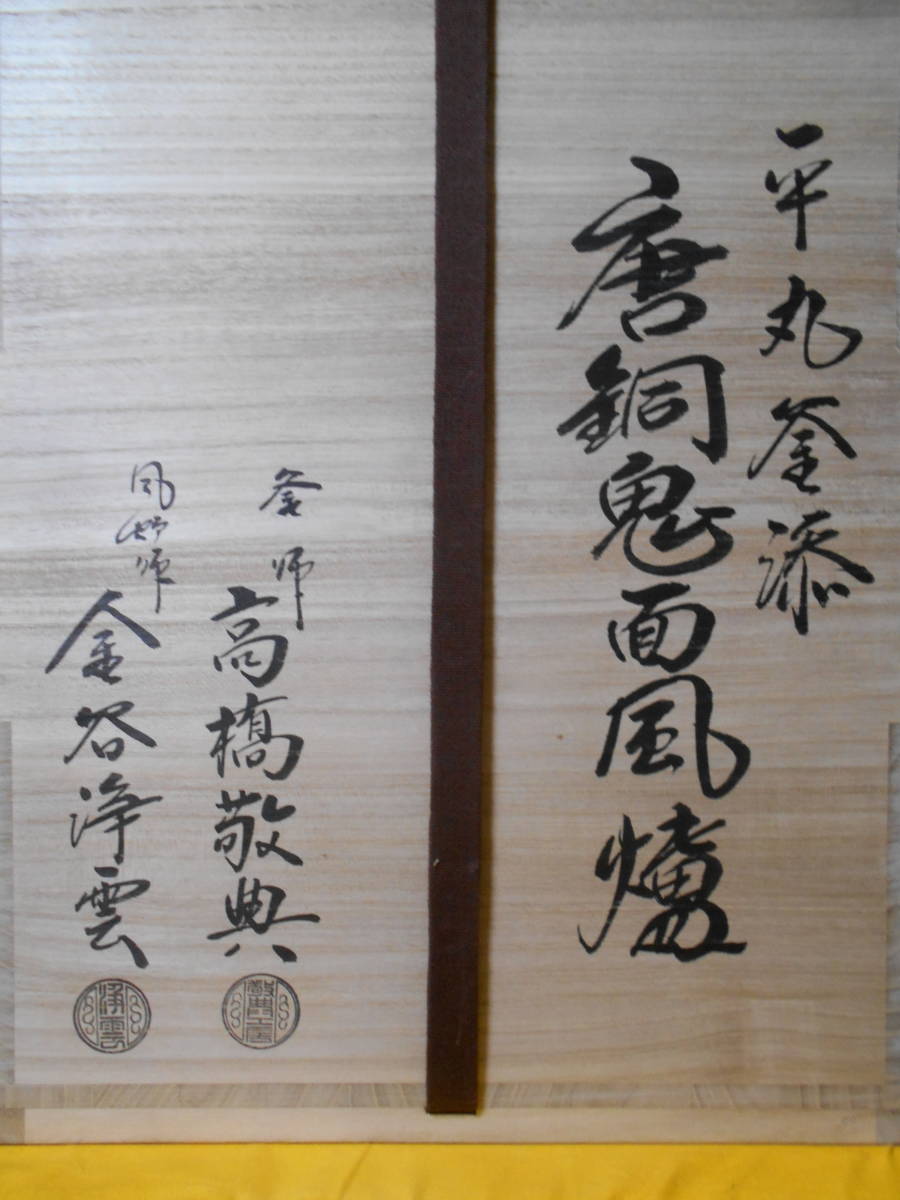 平丸釜添
唐銅鬼面風爐
釜師 高橋敬典
敬典工房
風炉師 金谷浄雲
浄雲